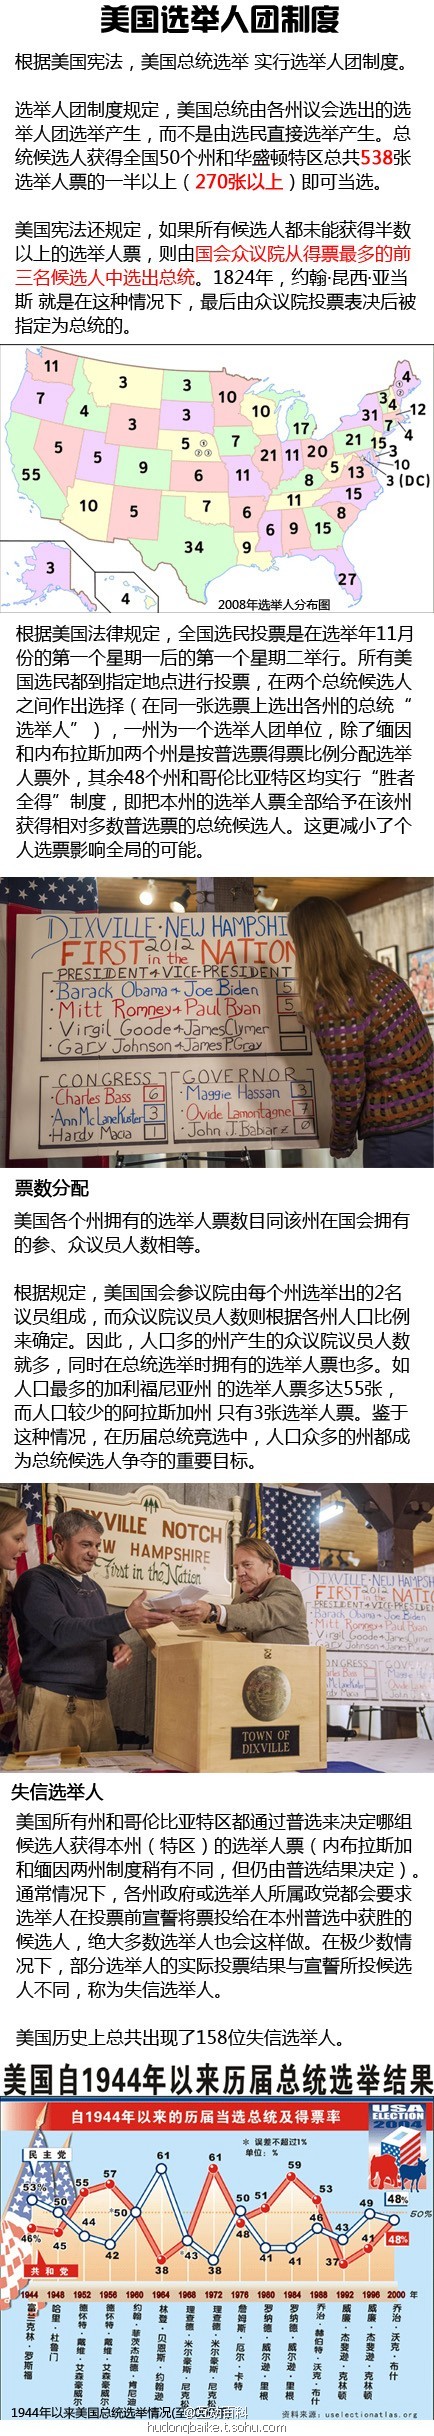 美国选举人团制度
根据美国宪法，美国总统选举 实行选举人团制度。
选举人团制度规定，美国总统由各州议会选出的选
举人团选举产生，而不是由选民直接选举产生。总
统候选人获得全国50个州和华盛顿特区总共538张
选举人票的一半以上（270张以上）即可当选。
美国宪法还规定，如果所有候选人都未能获得半数
以上的选举人票，则由国会众议院从得票最多的前
三名候选人中选出总统。1824年，约翰·昆西·亚当
斯 就是在这种情况下，最后由众议院投票表决后被
指定为总统的。
11 3 3 10 4
7 4 3 3 10 17 31 3 4 12
7 4
55 5 5 9 5 7 21 11 20 21 15 3
6 11 8 5 13 10
3 (DC)
10 5 7 6 11 15
34 9 6 9 15 8
3 4 27
2008年选举人分布图
根据美国法律规定，全国选民投票是在选举年11月
份的第一个星期一后的第一个星期二举行。所有美
国选民都到指定地点进行投票，在两个总统候选人
之间作出选择（在同一张选票上选出各州的总统“
选举人”），一州为一个选举人团单位，除了缅因
和内布拉斯加两个州是按普选票得票比例分配选举
人票外，其余48个州和哥伦比亚特区均实行“胜者
全得”制度，即把本州的选举人票全部给予在该州
获得相对多数普选票的总统候选人。这更减小了个
人选票影响全局的可能。
DIXVILLE·NEW HAMPSHI
FIRST 2012 in the NATION
PRESIDENT & VICE-PRESIDENT
·Barack Obama & Joe Biden 5
·Mitt Romney & Paul Ryan 5
·Virgil Goode & James Clymer
·Gary Johnson & James P. Gray
CONGRESS
·Charles Bass 6
·Ann McLane Kuster 3
·Hardy Macia 1
GOVERNOR
·Maggie Hassan 3
·Ovide Lamontagne 7
·John J. Babiarz 0
票数分配
美国各个州拥有的选举人票数目同该州在国会拥有
的参、众议员人数相等。
根据规定，美国国会参议院由每个州选举出的2名
议员组成，而众议院议员人数则根据各州人口比例
来确定。因此，人口多的州产生的众议院议员人数
就多，同时在总统选举时拥有的选举人票也多。如
人口最多的加利福尼亚州 的选举人票多达55张，
而人口较少的阿拉斯加州 只有3张选举人票。鉴于
这种情况，在历届总统竞选中，人口众多的州都成
为总统候选人争夺的重要目标。
DIXVILLE NOTCH
NEW HAMPSHIRE
"First in the Nation"
TOWN OF
DIXVILLE
失信选举人
美国所有州和哥伦比亚特区都通过普选来决定哪组
候选人获得本州（特区）的选举人票（内布拉斯加
和缅因两州制度稍有不同，但仍由普选结果决定）。
通常情况下，各州政府或选举人所属政党都会要求
选举人在投票前宣誓将票投给在本州普选中获胜的
候选人，绝大多数选举人也会这样做。在极少数情
况下，部分选举人的实际投票结果与宣誓所投候选
人不同，称为失信选举人。
美国历史上总共出现了158位失信选举人。
美国自1944年以来历届总统选举结果
自1944年以来的历届当选总统及得票率
USA
ELECTION
2004
* 误差不超过1%
单位：%
民主党
共和党
53% 50 55 57 *50 61 61 50 51 59 53 49 48%
46% 45 44 42 38 *43 38 48 41 41 46 43 37 41 48%
50%
1944 1948 1952 1956 1960 1964 1968 1972 1976 1980 1984 1988 1992 1996 2000年
富兰克林·罗斯福
哈里·杜鲁门
德怀特·戴维·艾森豪威尔
德怀特·戴维·艾森豪威尔
约翰·菲茨杰拉德·肯尼迪
林登·贝恩斯·约翰逊
理查德·米尔豪斯·尼克松
理查德·米尔豪斯·尼克松
詹姆斯·厄尔·卡特
罗纳德·威尔逊·里根
罗纳德·威尔逊·里根
乔治·赫伯特·沃克·布什
威廉·杰斐逊·克林顿
威廉·杰斐逊·克林顿
乔治·沃克·布什
1944年以来美国总统选举情况(至
@互动百科
资料来源：uselectionatlas.org
hudongbaike.t.sohu.com